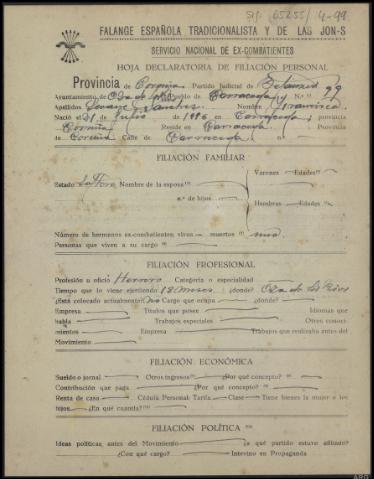 05255 4-99
FALANGE ESPAÑOLA TRADICIONALISTA Y DE LAS JON-S
SERVICIO NACIONAL DE EX-COMBATIENTES
HOJA DECLARATORIA DE FILIACIÓN PERSONAL
Provincia de Coruña Partido Judicial de Betanzos 99
Ayuntamiento de Oza de los Ríos de N.º
Apellidos Nombre Francisco
Nació el 21 de Julio de 1916 en provincia
Coruña Reside en Provincia
de Coruña Calle de n.º
FILIACIÓN FAMILIAR
Varones Edades
Estado soltero Nombre de la esposa
n.º de hijos
Hembras Edades
Número de hermanos ex-combatientes vivos muertos uno
Personas que viven a su cargo
FILIACIÓN PROFESIONAL
Profesión u oficio Herrero Categoría o especialidad
Tiempo que lo viene ejerciendo 18 meses donde? Oza de los Ríos
¿Está colocado actualmente? no Cargo que ocupa ¿dónde?
Empresa Títulos que posee Idiomas que
habla Trabajos especiales Otros conoci-
mientos Empresa Trabajos que realizaba antes del
Movimiento
FILIACIÓN ECONÓMICA
Sueldo o jornal Otros ingresos ¿Por qué concepto?
Contribución que paga ¿Por qué concepto?
Renta de casa Cédula Personal: Tarifa Clase Tiene bienes la mujer o los
hijos ¿En qué cuantía?
FILIACIÓN POLÍTICA
Ideas políticas antes del Movimiento ¿a qué partido estuvo afiliado?
¿Con qué cargo? Intervino en Propaganda